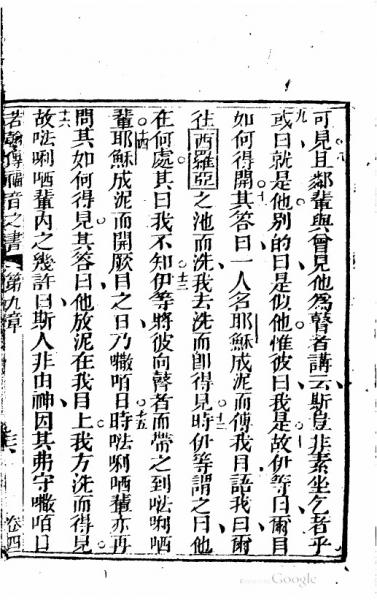 可見且鄰輩與曾見他為瞽者講云斯豈非素坐乞者乎
九或曰就是他別的曰是似他惟彼曰我是故伊等曰爾目
如何得開其答曰一人名耶穌成泥而傅我目語我曰爾
往西羅亞之池而洗我去洗而即得見時伊等謂之曰他
在何處其曰我不知伊等將彼向瞽者而帶之到㕸唎哂
輩耶穌成泥而開厥目之日乃㘔咟日時㕸唎哂輩亦再
問其如何得見其答曰他放泥在我目上我方洗而得見
十六故㕸唎哂輩內之幾許曰斯人非由神因其弗守㘔咟日
若翰傳福音之書 第九章 卷四
Google